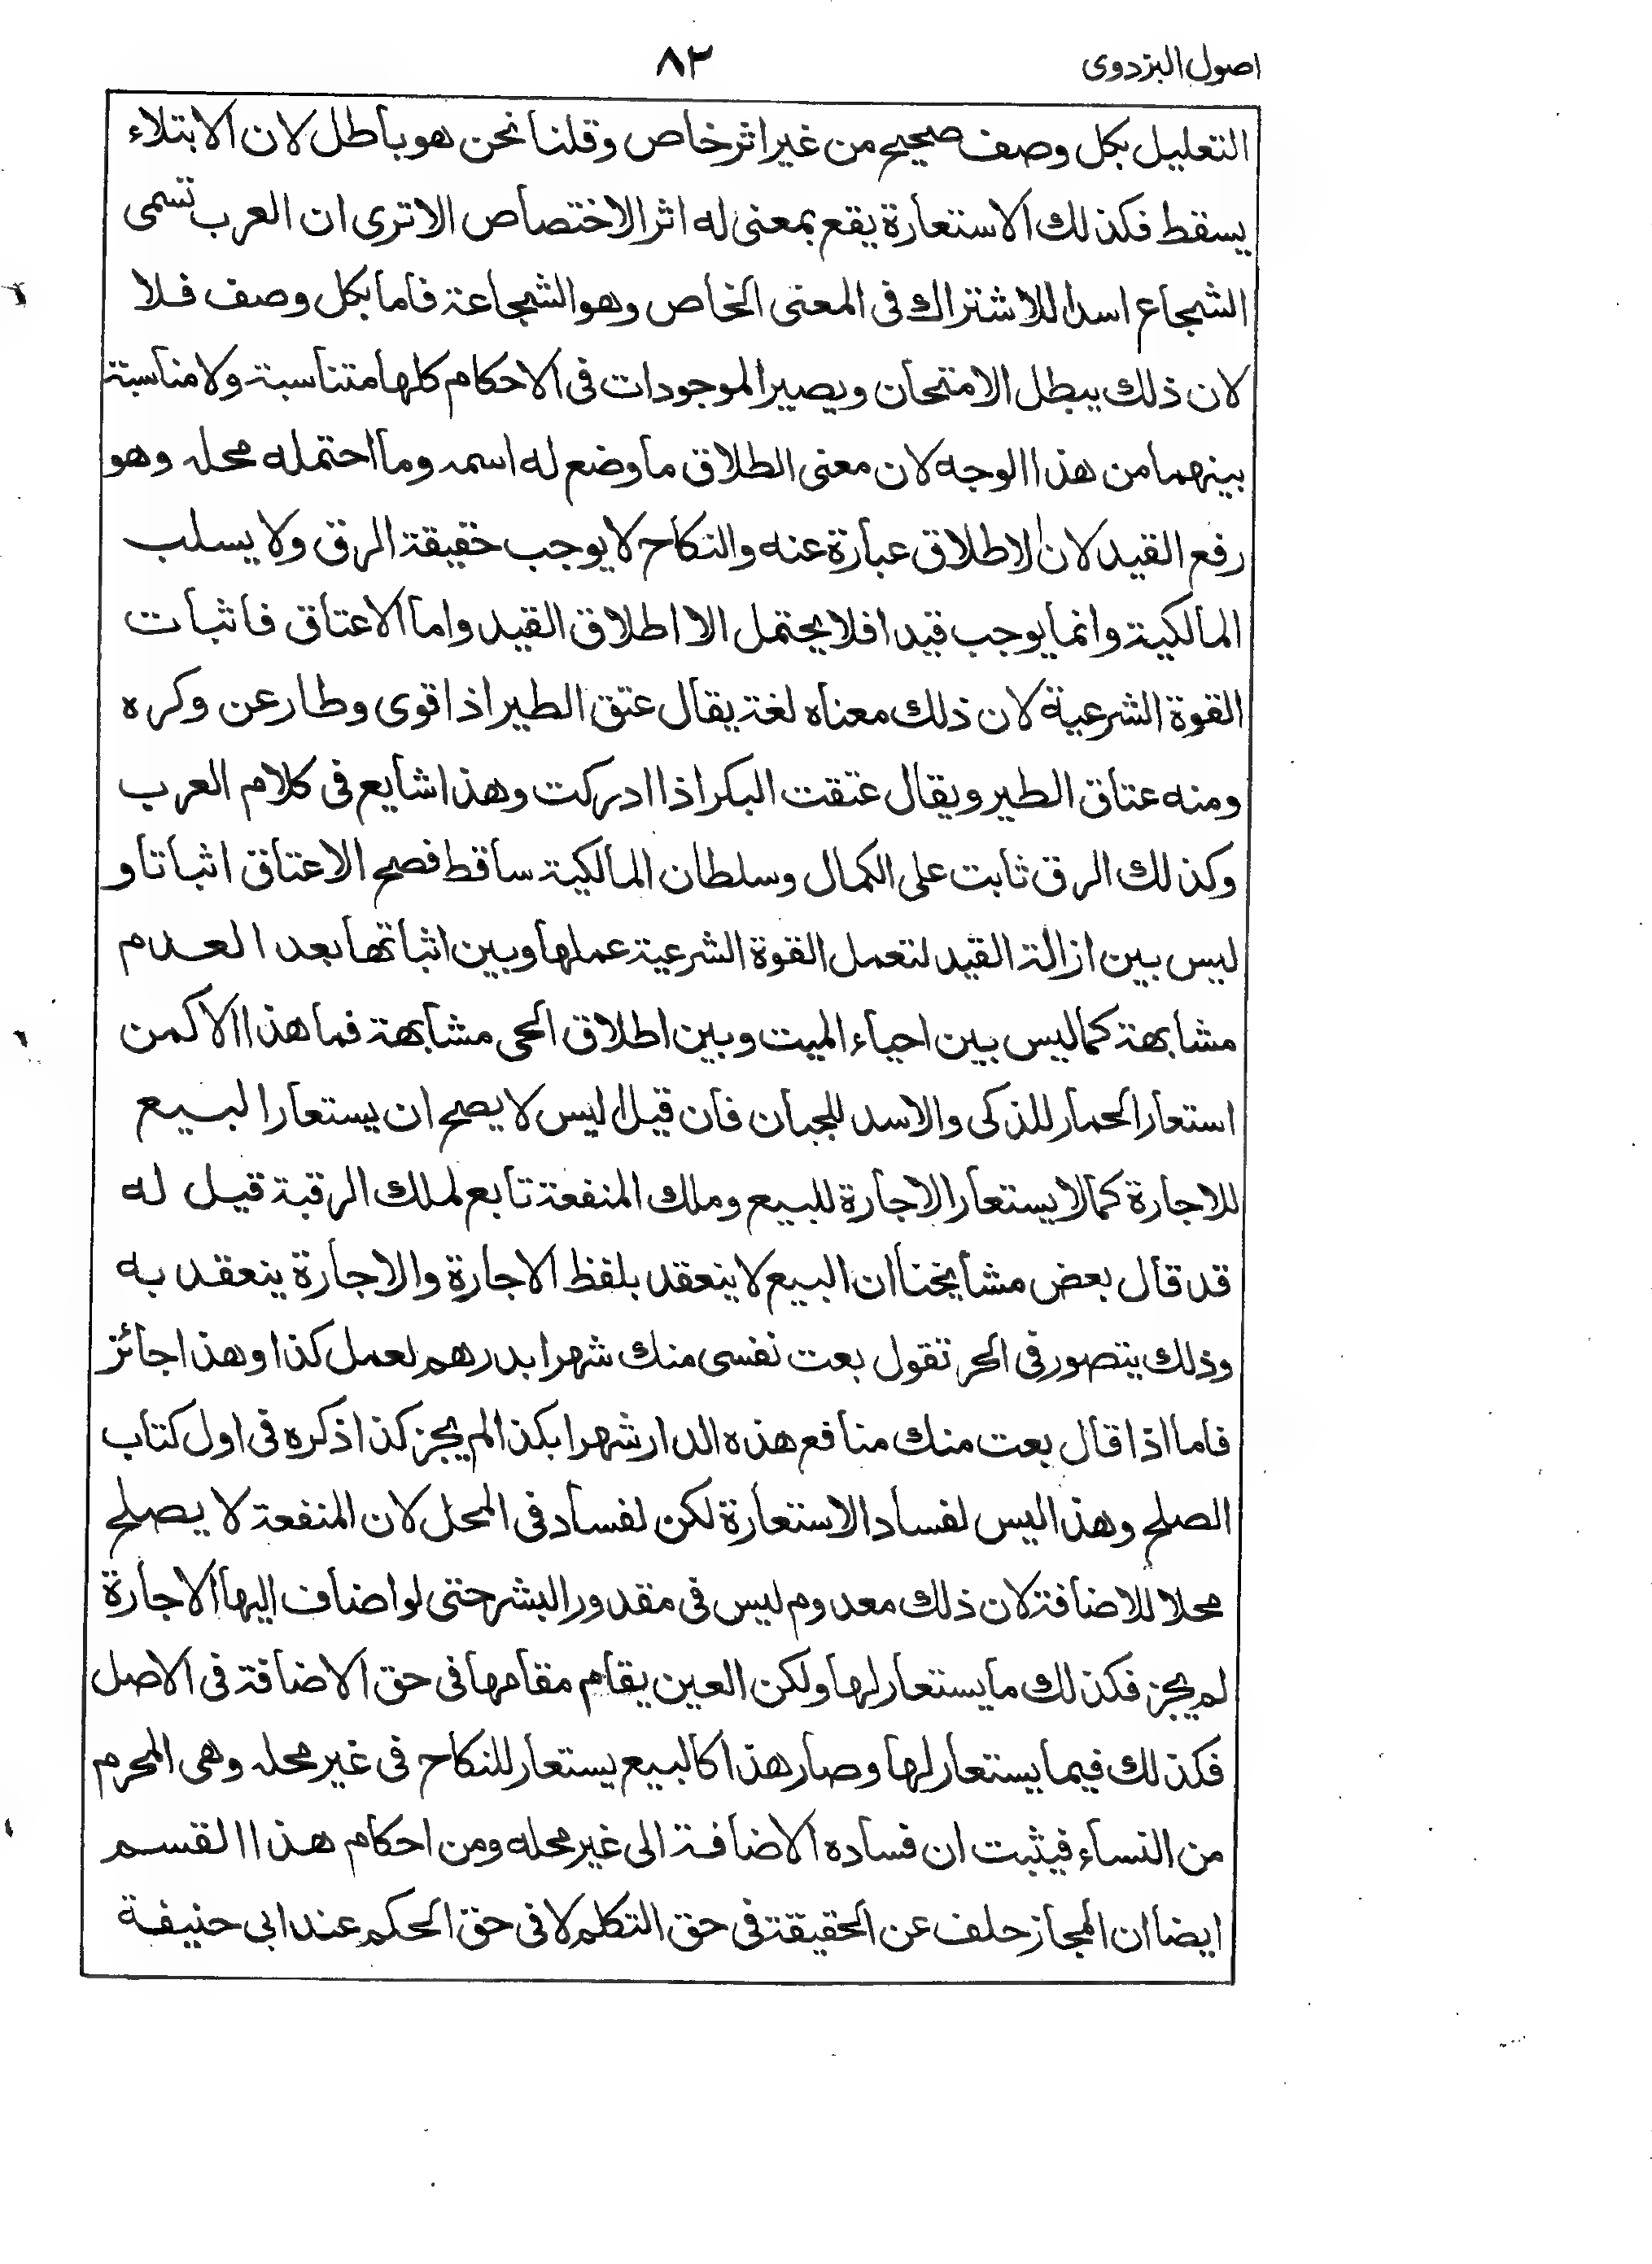 اصول البزدوى
٨٣
التعليل بكل وصف صحيح من غير اثر خاص وقلنا نحن هو باطل لان الابتلاء
يسقط فكذلك الاستعارة يقع بمعنى له اثر الاختصاص الاترى ان العرب تسمى
الشجاع اسدا للاشتراك فى المعنى الخاص وهو الشجاعة فاما بكل وصف فلا
لان ذلك يبطل الامتحان ويصير الموجودات فى الاحكام كلها متناسبة ولا مناسبة
بينهما من هذا الوجه لان معنى الطلاق ما وضع له اسمه وما احتمله محله وهو
رفع القيد لان الاطلاق عبارة عنه والنكاح لا يوجب حقيقة الرق ولا يسلب
المالكية وانما يوجب قيدا فلا يحتمل الا اطلاق القيد واما الاعتاق فاثبات
القوة الشرعية لان ذلك معناه لغة يقال عتق الطير اذا قوى وطار عن وكره
ومنه عتاق الطير ويقال عتقت البكر اذا ادركت وهذا شايع فى كلام العرب
وكذلك الرق ثابت على الكمال وسلطان المالكية ساقط فصح الاعتاق اثباتا و
ليس بين ازالة القيد لتعمل القوة الشرعية عملها وبين اثباتها بعد العدم
مشابهة كما ليس بين احياء الميت وبين اطلاق الحى مشابهة فما هذا الا كمن
استعار الحمار للذكى والاسد للجبان فان قيل اليس لا يصح ان يستعار البيع
للاجارة كما لا يستعار الاجارة للبيع وملك المنفعة تابع لملك الرقبة قيل له
قد قال بعض مشايخنا ان البيع لا ينعقد بلفظ الاجارة والاجارة ينعقد به
وذلك يتصور فى الحر تقول بعت نفسى منك شهرا بدرهم لعمل كذا وهذا جائز
فاما اذا قال بعت منك منافع هذه الدار شهرا بكذا لم يجز كذا ذكره فى اول كتاب
الصلح وهذا ليس لفساد الاستعارة لكن لفساد فى المحل لان المنفعة لا يصلح
محلا للاضافة لان ذلك معدوم ليس فى مقدور البشر حتى لو اضاف اليها الاجارة
لم يجز فكذلك ما يستعار لها ولكن العين يقام مقامها فى حق الاضافة فى الاصل
فكذلك فيما يستعار لها وصار هذا كالبيع يستعار للنكاح فى غير محله وهى المحرم
من النساء فيثبت ان فساده الاضافة الى غير محله ومن احكام هذا القسم
ايضا ان المجاز حلف عن الحقيقة فى حق التكلم لا فى حق الحكم عند ابى حنيفة